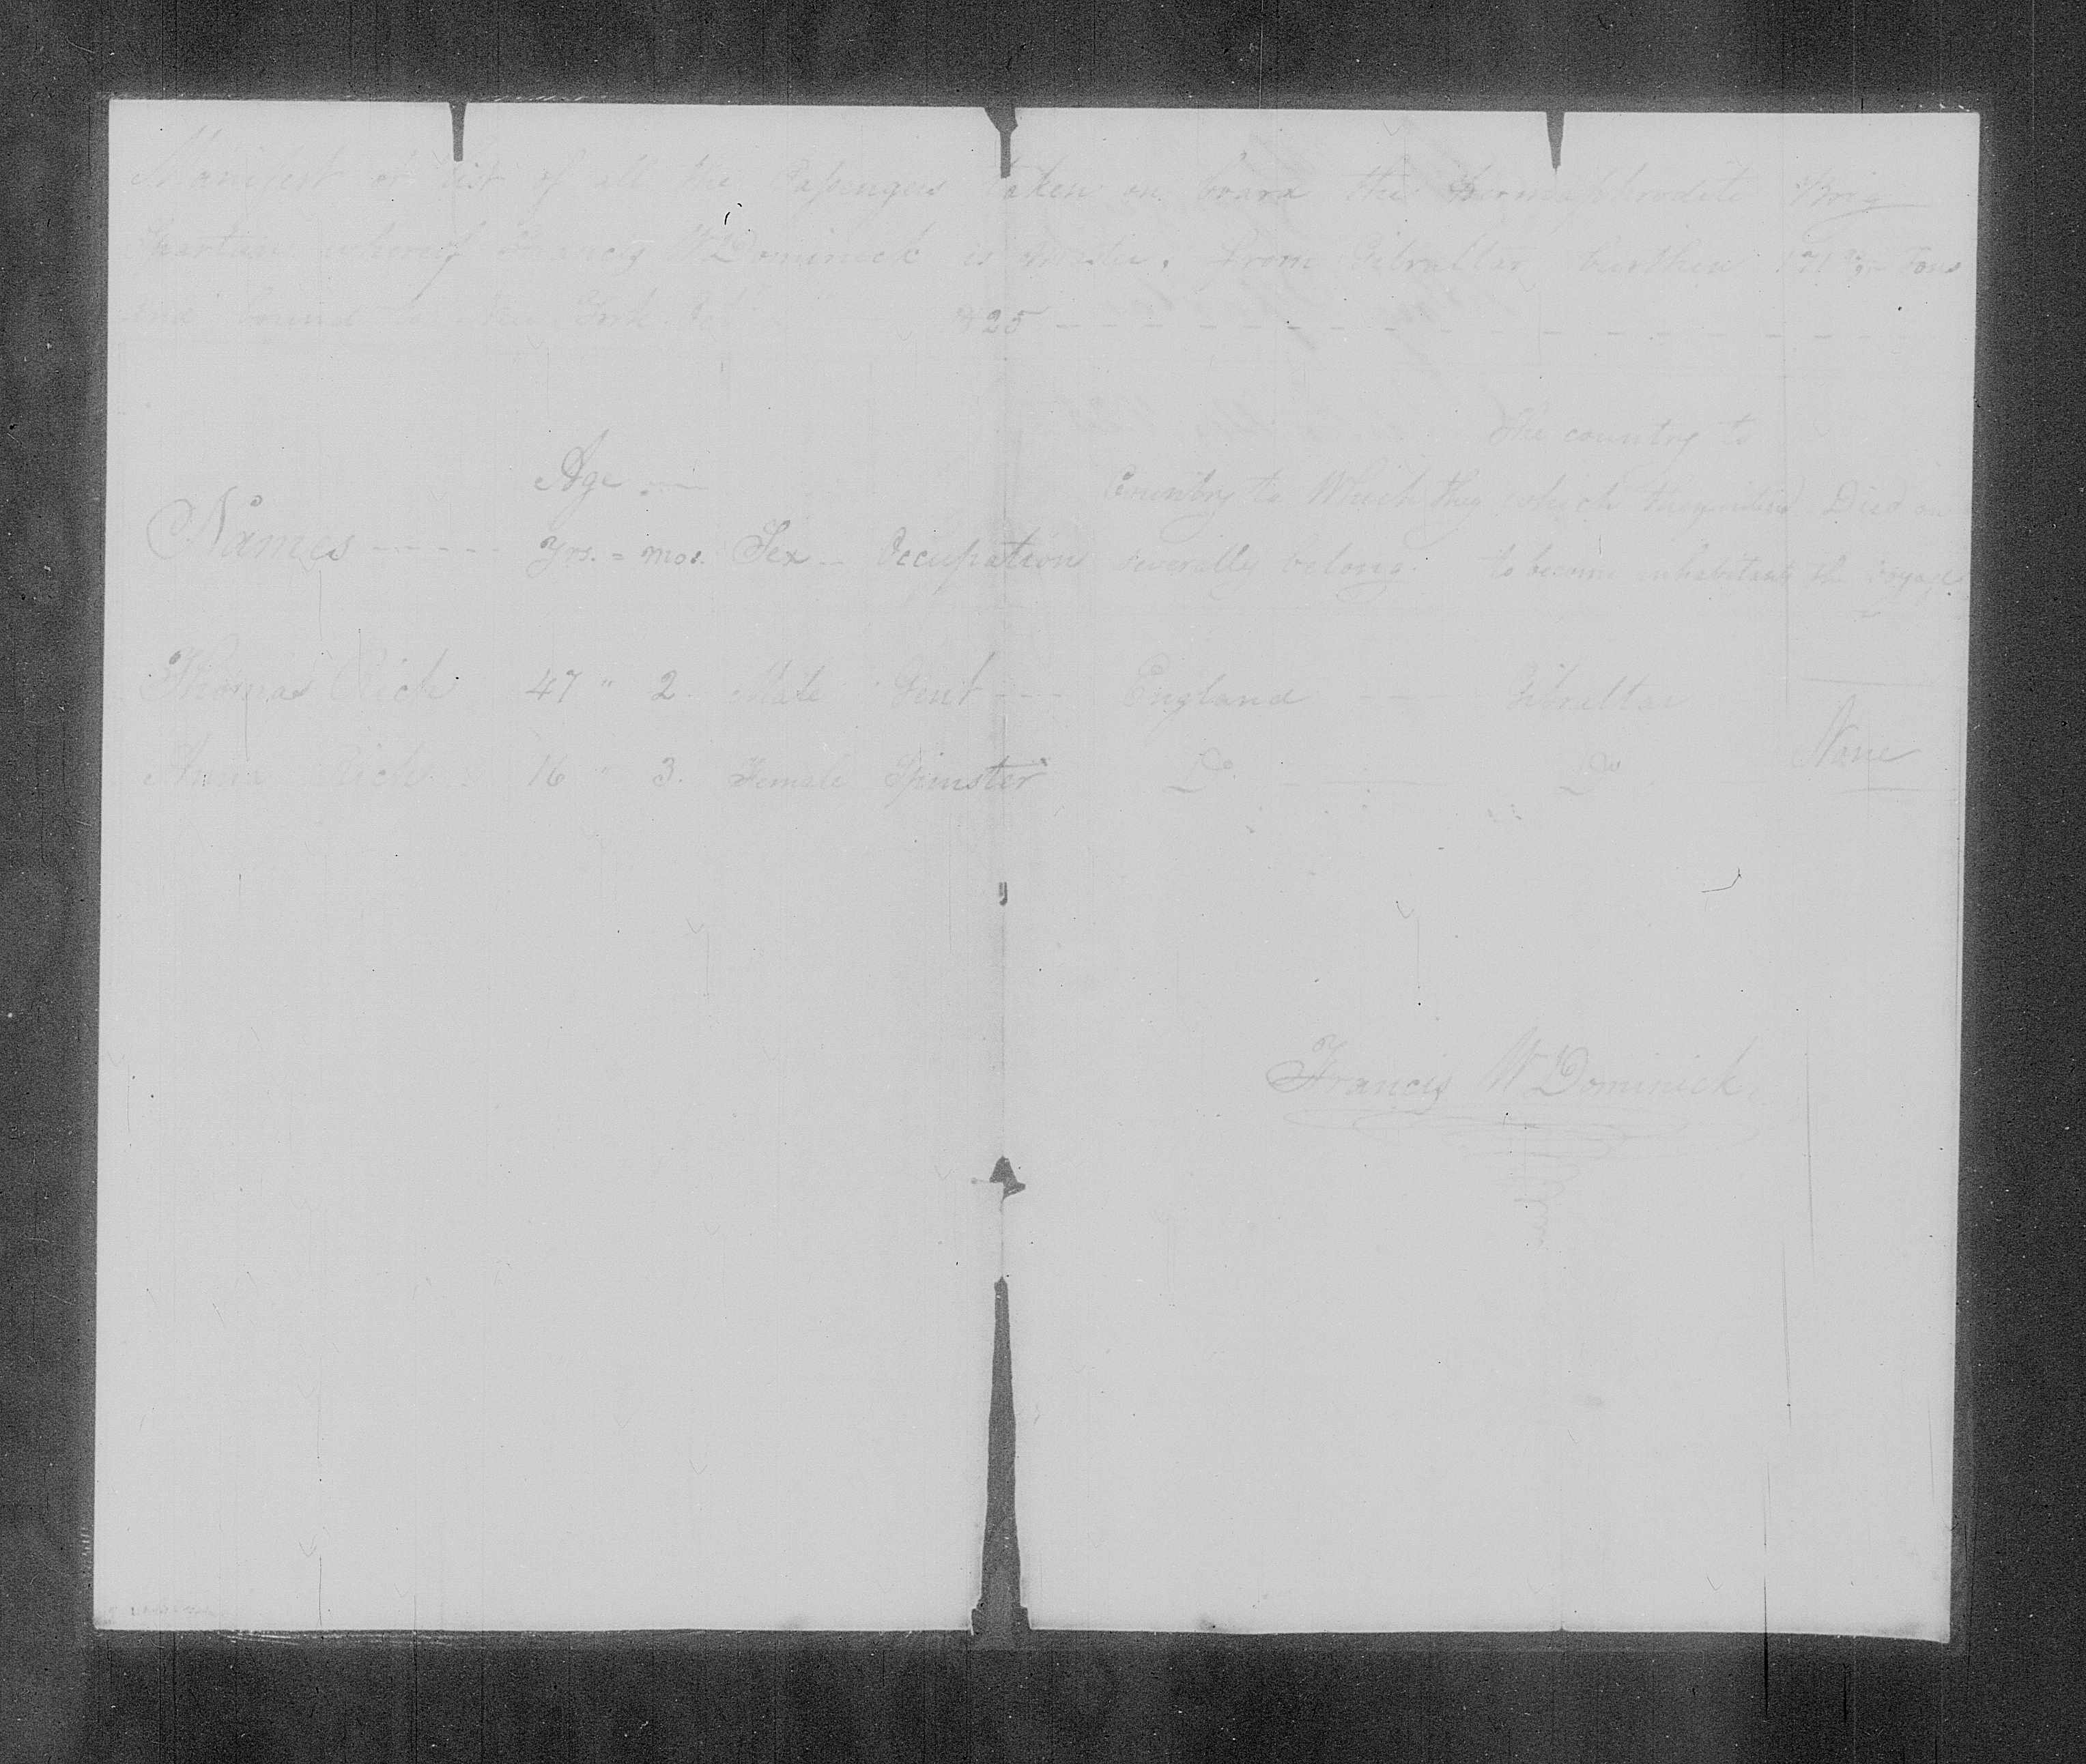 Manifest or list of all the Passengers taken on board the Hermaphrodite Brig
Spartan whereof Francis W Dominick is Master, from Gibraltar burthen Tons
and bound to New York 1825
Age
The country to
Names yrs. = mos. Sex Occupation
Country to Which they severally belong
which they intend to become inhabitants
Died on the voyage
Thomas Rich 47 " 2 Male Gent England Gibraltar
Anna Rich 16 " 3. Female Spinster Do Do None
Francis W Dominick.